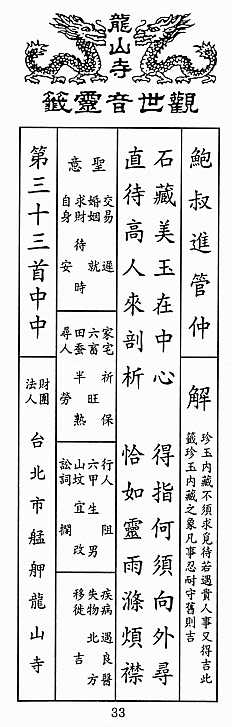 龍山寺
觀世音靈籤
鮑叔進管仲
解
珍玉內藏不須求覓待若遇貴人事又得吉此
籤珍玉內藏之象凡事忍耐守舊則吉
石藏美玉在中心 得指何須向外尋
直待高人來剖析 恰如靈雨滌煩襟
聖意
交易 遲
婚姻 就
求財 待時
自身 安
家宅 祈保
六畜 旺
田蚕 半熟
尋人 勞
行人 阻
六甲 生男
山墳 宜改
訟詞 擱
疾病 遇良醫
失物 北方
移徙 吉
第三十三首中中
財團法人 台北市艋舺龍山寺
33